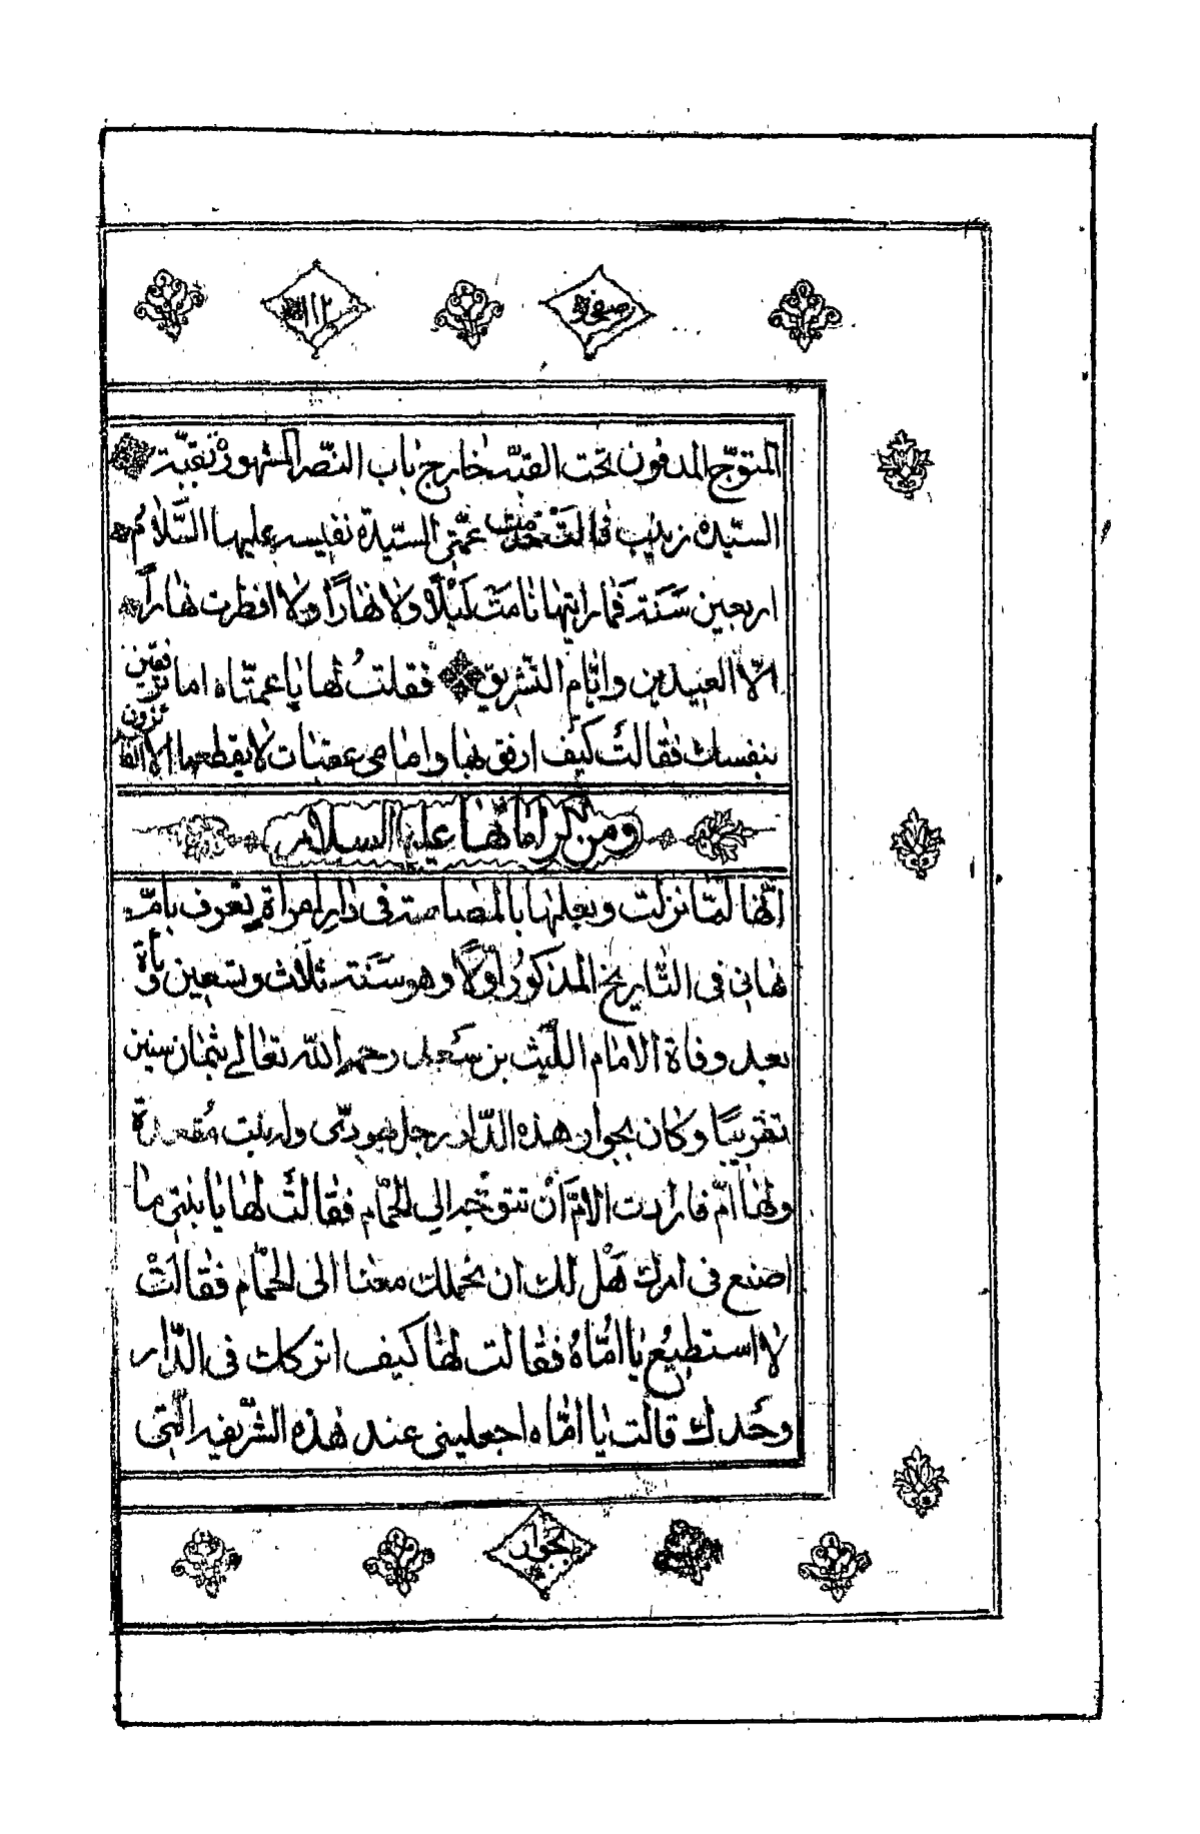 صفحة ١١٢
المتوّج المدفون تحت القبّة خارج باب النّصر المشهور بقبّة
السيّده زينب قالت خدمت عمّتى السيّدة نفيسه عليها السَّلام
اربعين سَنَة فَما رايتها نامَت لَيْلًا ولا نهارًا ولا افطرت نهارًا
الّا العيدين وايّام التّشريق فقلتُ لها يا عمّتاه اما ترفقين
بنفسك فقالت كيف ارفق بها وامامى عقبات لا يقطعها الا الفائزون
ومن كراماتها عليها السلام
انّها لمّا نزلت وبعلها بالمصاصة فى دار امراة تعرف بامّ
هانى فى التّاريخ المذكور اولًا وهو سَنَة ثلاث وتسعين ومأة
بعد وفاة الامام اللّيث بن سَعد رحمه اللّه تعالى بثمان سنين
تقريبًا وكان بجوار هذه الدّار رجل يهودىّ وله بنت مُقعدة
ولها امّ فارادت الامّ اَنْ تتوجّه الى الحمّام فقالتْ لها يا بنتى ما
اصنع فى امرك هَلْ لك ان نحملك معنا الى الحمّام فقالَتْ
لا استطيعُ يا امّاهُ فقالت لها كيف اتركك فى الدّار
وحَدك قالت يا امّاه اجعلينى عند هذه الشّريفه الّتى
بجوار